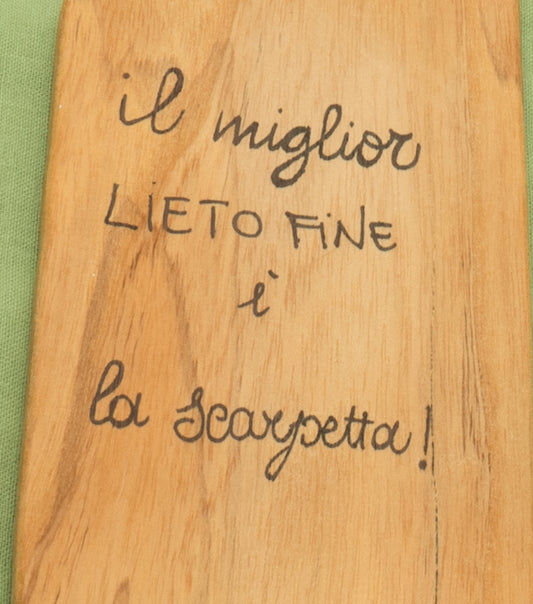 il miglior
LIETO FINE
è
la scarpetta!